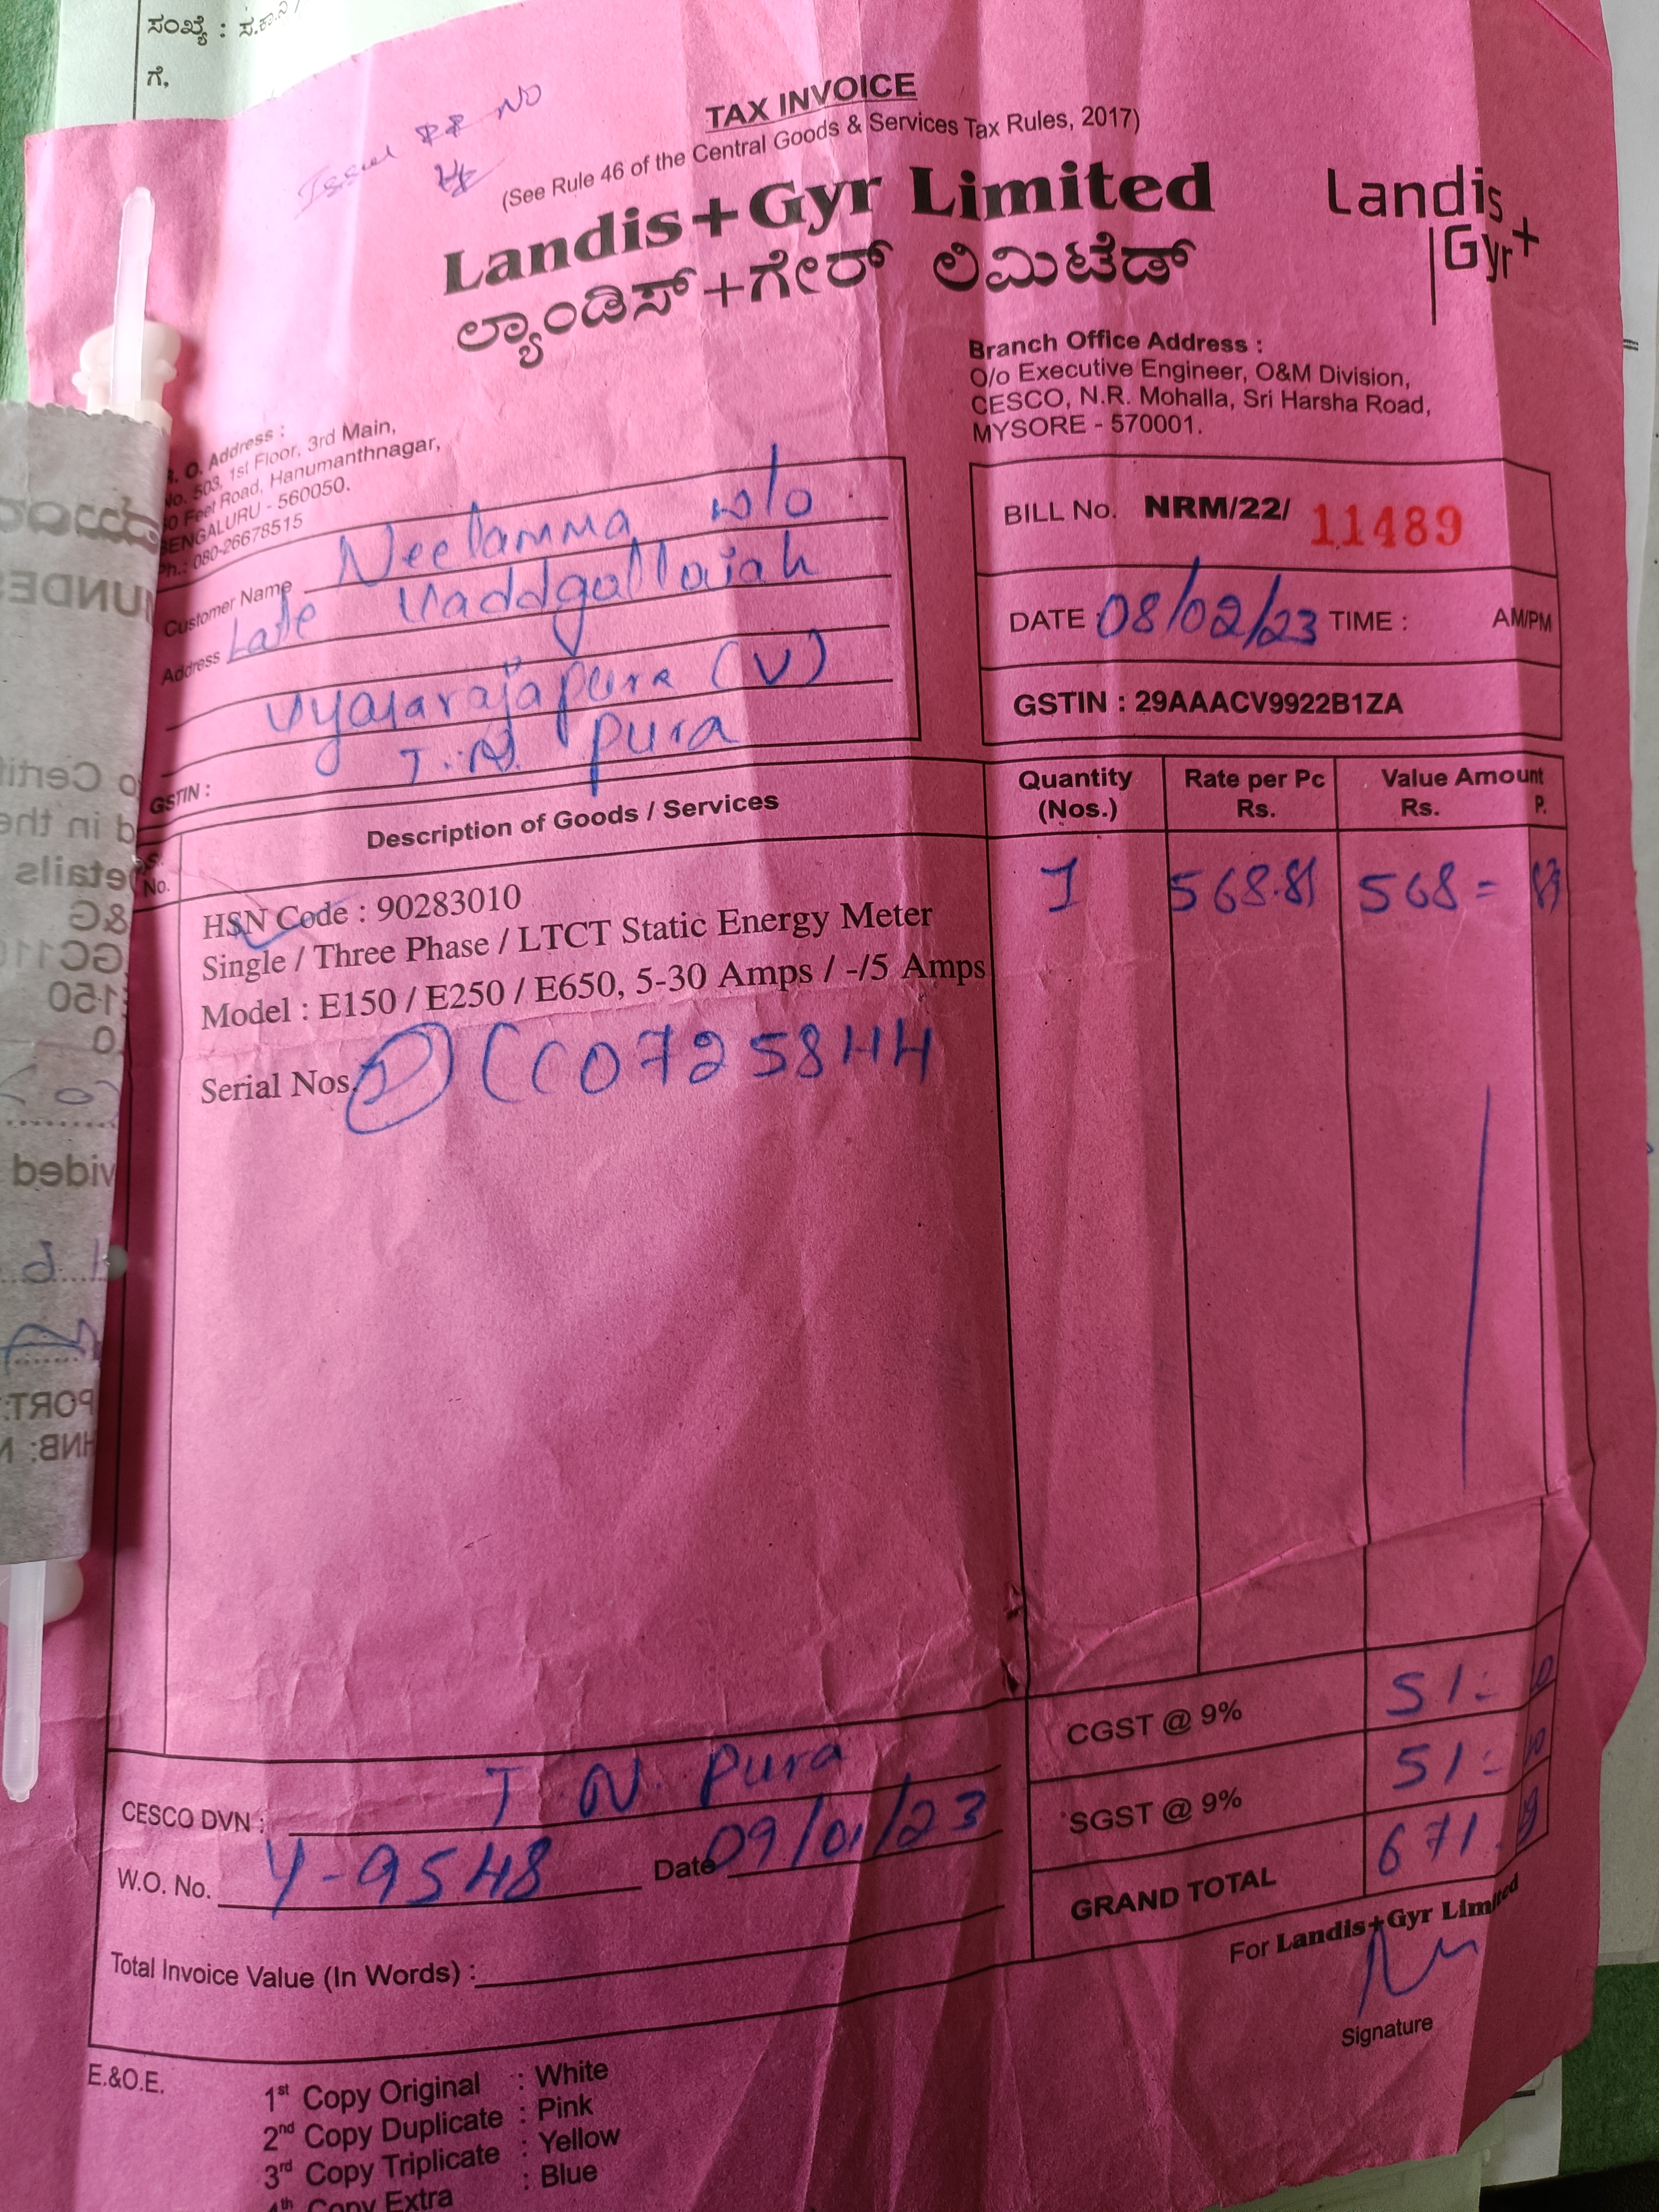 ಸಂಖ್ಯೆ : ಸ.ಕಾ.ನಿ /
ಗೆ,
Issue RR NO
TAX INVOICE
(See Rule 46 of the Central Goods & Services Tax Rules, 2017)
Landis+Gyr Limited
ಲ್ಯಾಂಡಿಸ್+ಗೇರ್ ಲಿಮಿಟೆಡ್
Landis
Gyr+
R. O. Address :
No. 503, 1st Floor, 3rd Main,
50 Feet Road, Hanumanthnagar,
BENGALURU - 560050.
Ph.: 080-26678515
Branch Office Address :
O/o Executive Engineer, O&M Division,
CESCO, N.R. Mohalla, Sri Harsha Road,
MYSORE - 570001.
Customer Name Neelamma w/o
Address Late Vaddgallaiah
Vyasarajapura (V)
T.N. Pura
GSTIN :
BILL No. NRM/22/ 11489
DATE 08/02/23 TIME : AM/PM
GSTIN : 29AAACV9922B1ZA
S. No. Description of Goods / Services Quantity (Nos.) Rate per Pc Rs. Value Amount Rs. P.
HSN Code : 90283010 1 568.81 568 =
Single / Three Phase / LTCT Static Energy Meter
Model : E150 / E250 / E650, 5-30 Amps / -/5 Amps
Serial Nos. CC0725844
CGST @ 9% 51
SGST @ 9% 51
GRAND TOTAL 671
CESCO DVN : T N. Pura
W.O. No. Y-9548 Date 09/01/23
Total Invoice Value (In Words) :
For Landis+Gyr Limited
Signature
E.&O.E.
1st Copy Original : White
2nd Copy Duplicate : Pink
3rd Copy Triplicate : Yellow
4th Copy Extra : Blue